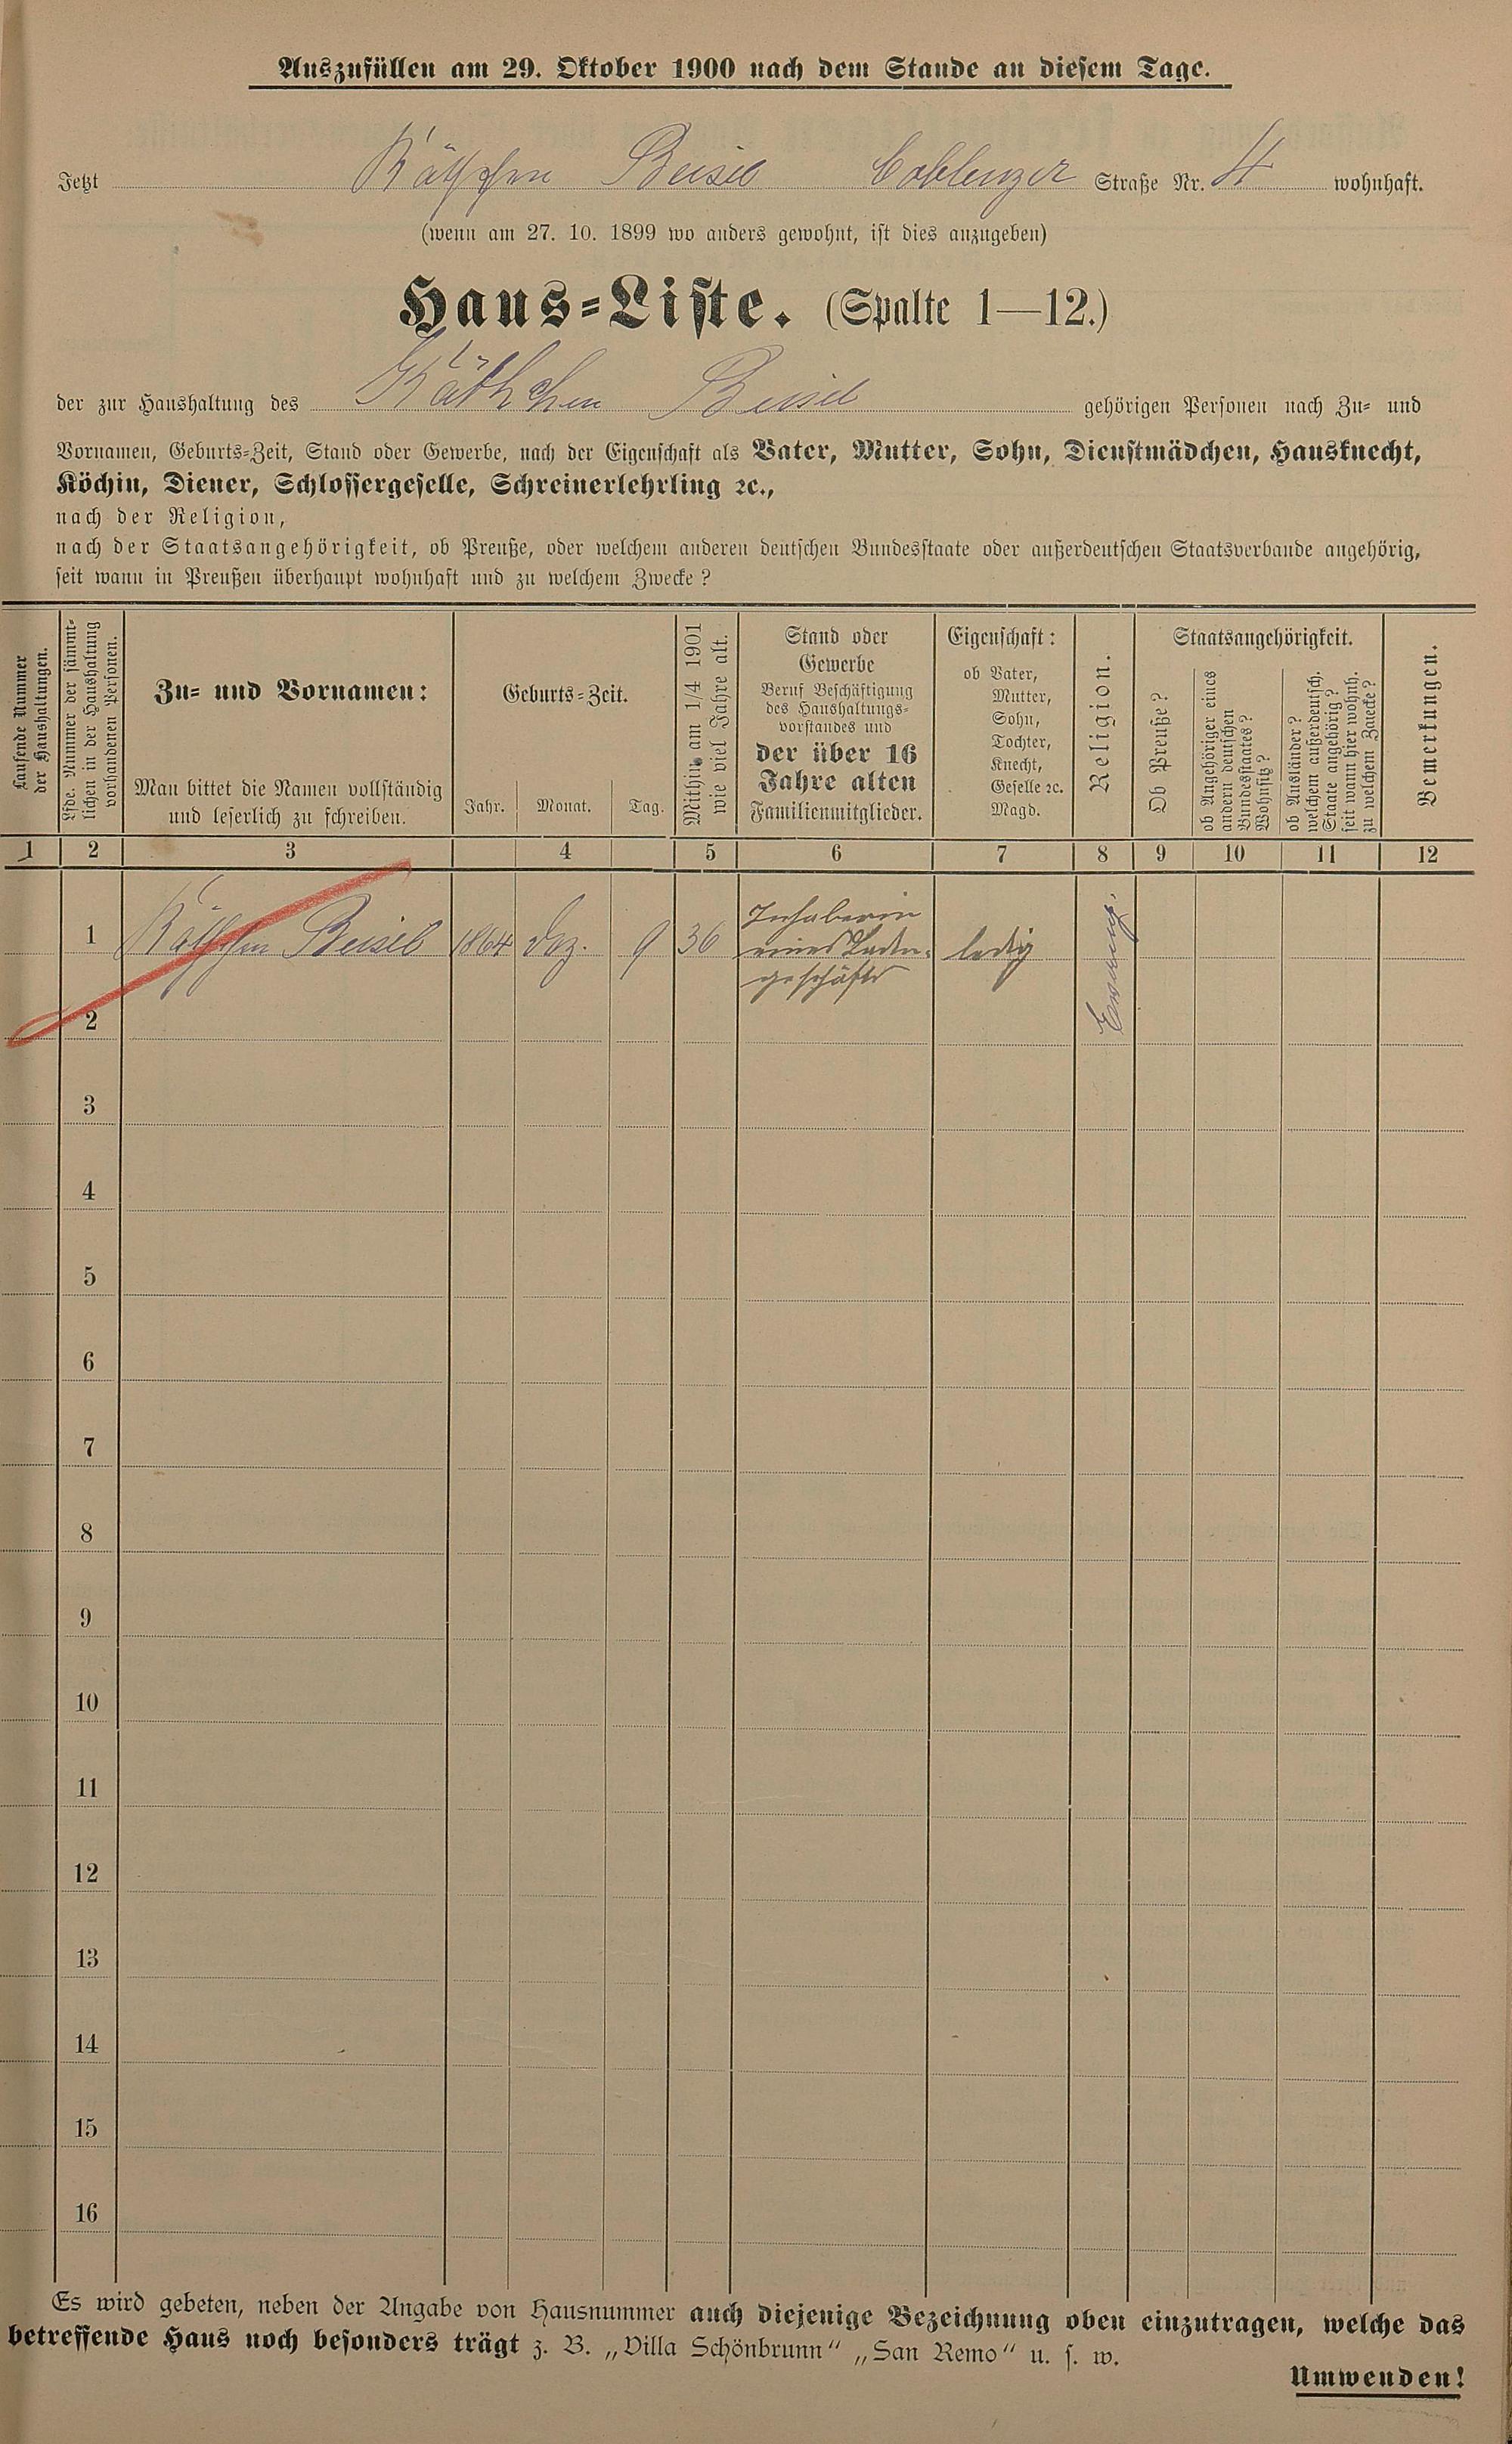 Auszufüllen am 29. Oktober 1900 nach dem Stande an diesem Tage.
Jetzt Käthchen Beisel Coblenzer Straße Nr. 4 wohnhaft.
(wenn am 27. 10. 1899 wo anders gewohnt, ist dies anzugeben)
Haus=Liste. (Spalte 1—12.)
der zur Haushaltung des Käthchen Beisel gehörigen Personen nach Zu= und
Vornamen, Geburts=Zeit, Stand oder Gewerbe, nach der Eigenschaft als Vater, Mutter, Sohn, Dienstmädchen, Hausknecht,
Köchin, Diener, Schlossergeselle, Schreinerlehrling ꝛc.,
nach der Religion,
nach der Staatsangehörigkeit, ob Preuße, oder welchem anderen deutschen Bundesstaate oder außerdeutschen Staatsverbande angehörig,
seit wann in Preußen überhaupt wohnhaft und zu welchem Zwecke?
Laufende Nummer
der Haushaltungen.
Lfde. Nummer der sämmt=
lichen in der Haushaltung
vorhandenen Personen.
Zu= und Vornamen:
Man bittet die Namen vollständig
und leserlich zu schreiben.
Geburts=Zeit.
Jahr. Monat. Tag.
Mithin am 1/4 1901
wie viel Jahre alt.
Stand oder
Gewerbe
Beruf Beschäftigung
des Haushaltungs=
vorstandes und
der über 16
Jahre alten
Familienmitglieder.
Eigenschaft:
ob Vater,
Mutter,
Sohn,
Tochter,
Knecht,
Geselle ꝛc.
Magd.
Religion.
Staatsangehörigkeit.
Ob Preuße?
ob Angehöriger eines
andern deutschen
Bundesstaates?
Wohnsitz?
ob Ausländer?
welchem außerdeutsch.
Staate angehörig?
seit wann hier wohnh.
zu welchem Zwecke?
Bemerkungen.
1 2 3 4 5 6 7 8 9 10 11 12
1 Käthchen Beisel 1864 Dez. 9 36 Inhaberin eines Laden= geschäfts ledig Evang.
2
3
4
5
6
7
8
9
10
11
12
13
14
15
16
Es wird gebeten, neben der Angabe von Hausnummer auch diejenige Bezeichnung oben einzutragen, welche das
betreffende Haus noch besonders trägt z. B. „Villa Schönbrunn“ „San Remo“ u. s. w.
Umwenden!